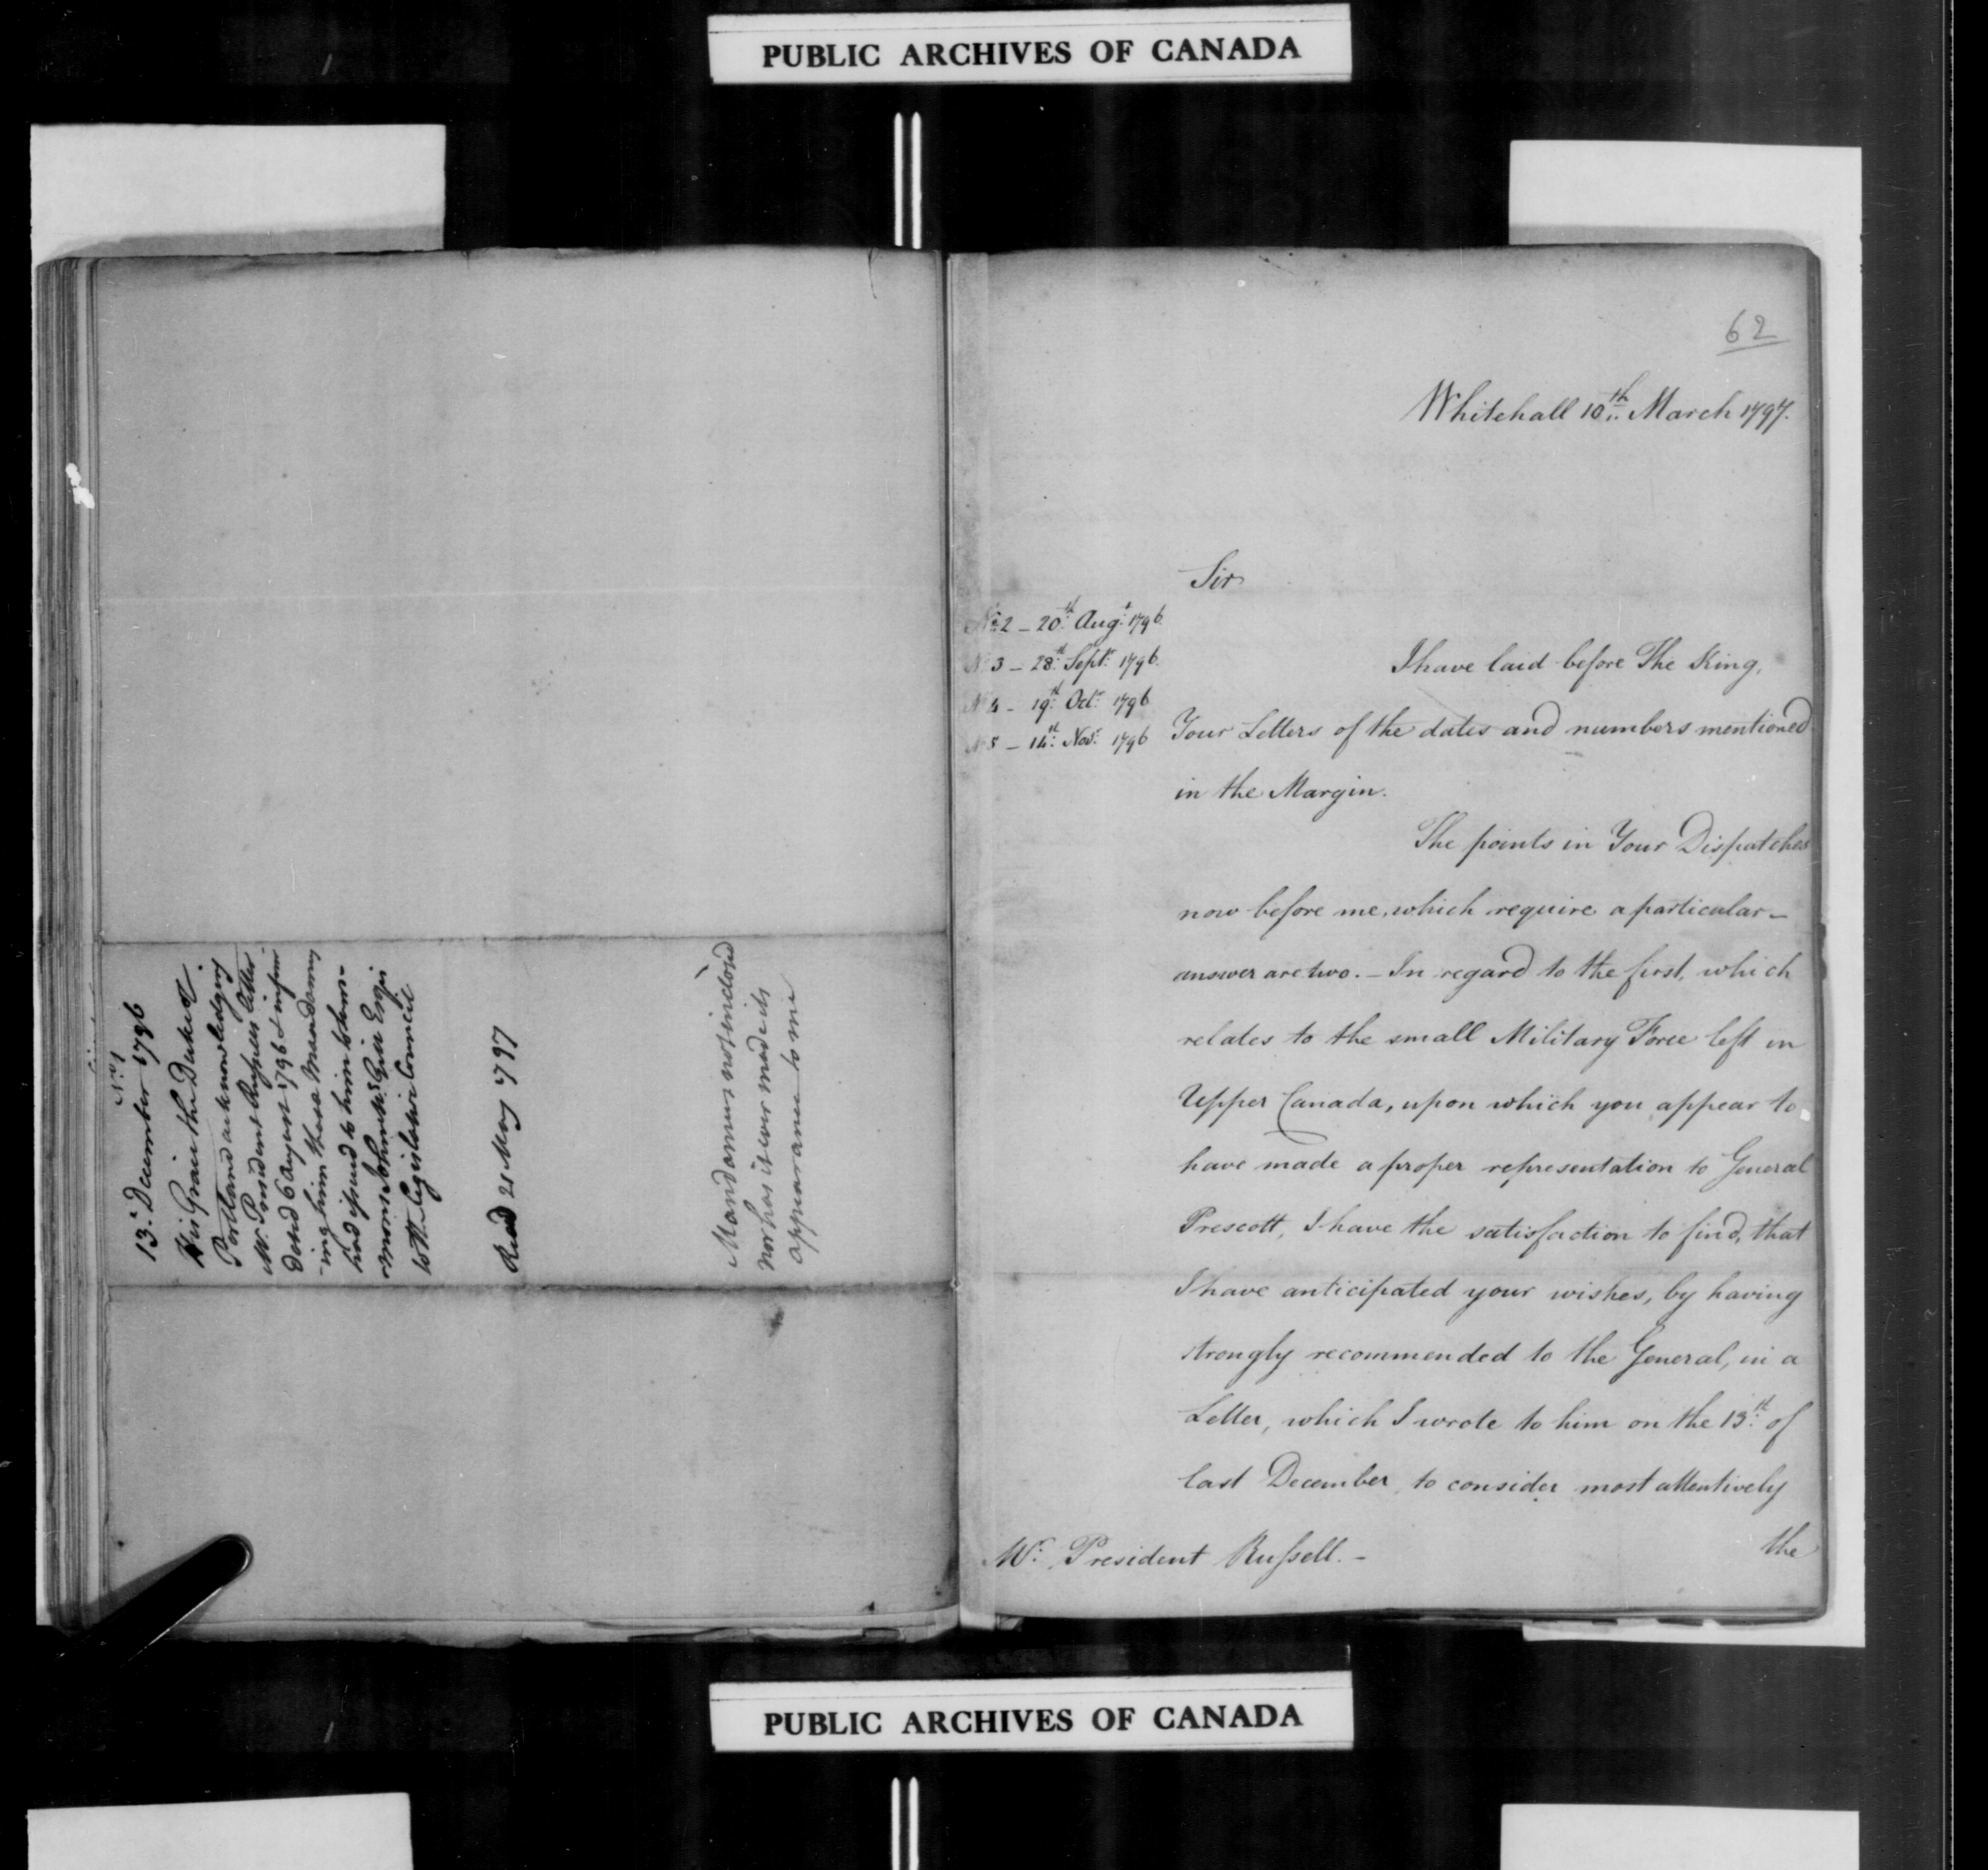 PUBLIC ARCHIVES OF CANADA
No. 1
13. December 1796
His Grace the Duke of
Portland acknowledging
Mr. President Russells letter
dated 6 August 1796 & inform
-ing him that a Mandamus
had issued to him to sum=
-mons Esqr.
to the Legislative Council
Recd 21 May 1797
Mandamus not inclosed
nor has it ever made its
appearance to me
62
Whitehall 10th March 1797.
Sir
No. 2 – 20th Augt. 1796.
No 3 – 28th Septr. 1796.
No 4 – 19th Octr. 1796
No 5 – 14th Novr. 1796
I have laid before The King,
Your Letters of the dates and numbers mentioned
in the Margin.
The points in Your Dispatches
now before me, which require a particular –
answer are two. – In regard to the first, which
relates to the small Military Force left in
Upper Canada, upon which you appear to
have made a proper representation to General
Prescott, I have the satisfaction to find, that
I have anticipated your wishes, by having
strongly recommended to the General, in a
Letter, which I wrote to him on the 13th of
last December, to consider most attentively
Mr. President Russell. –
the
PUBLIC ARCHIVES OF CANADA